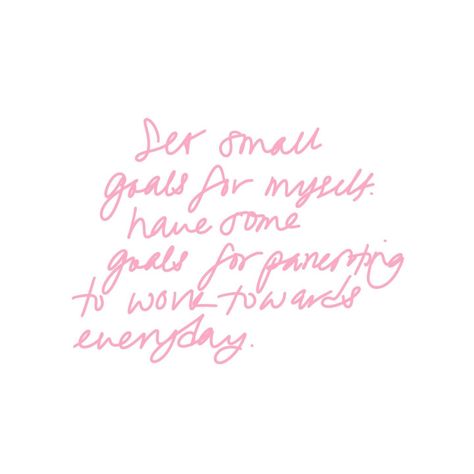 Set small
goals for myself.
have some
goals for parenting
to work towards
everyday.